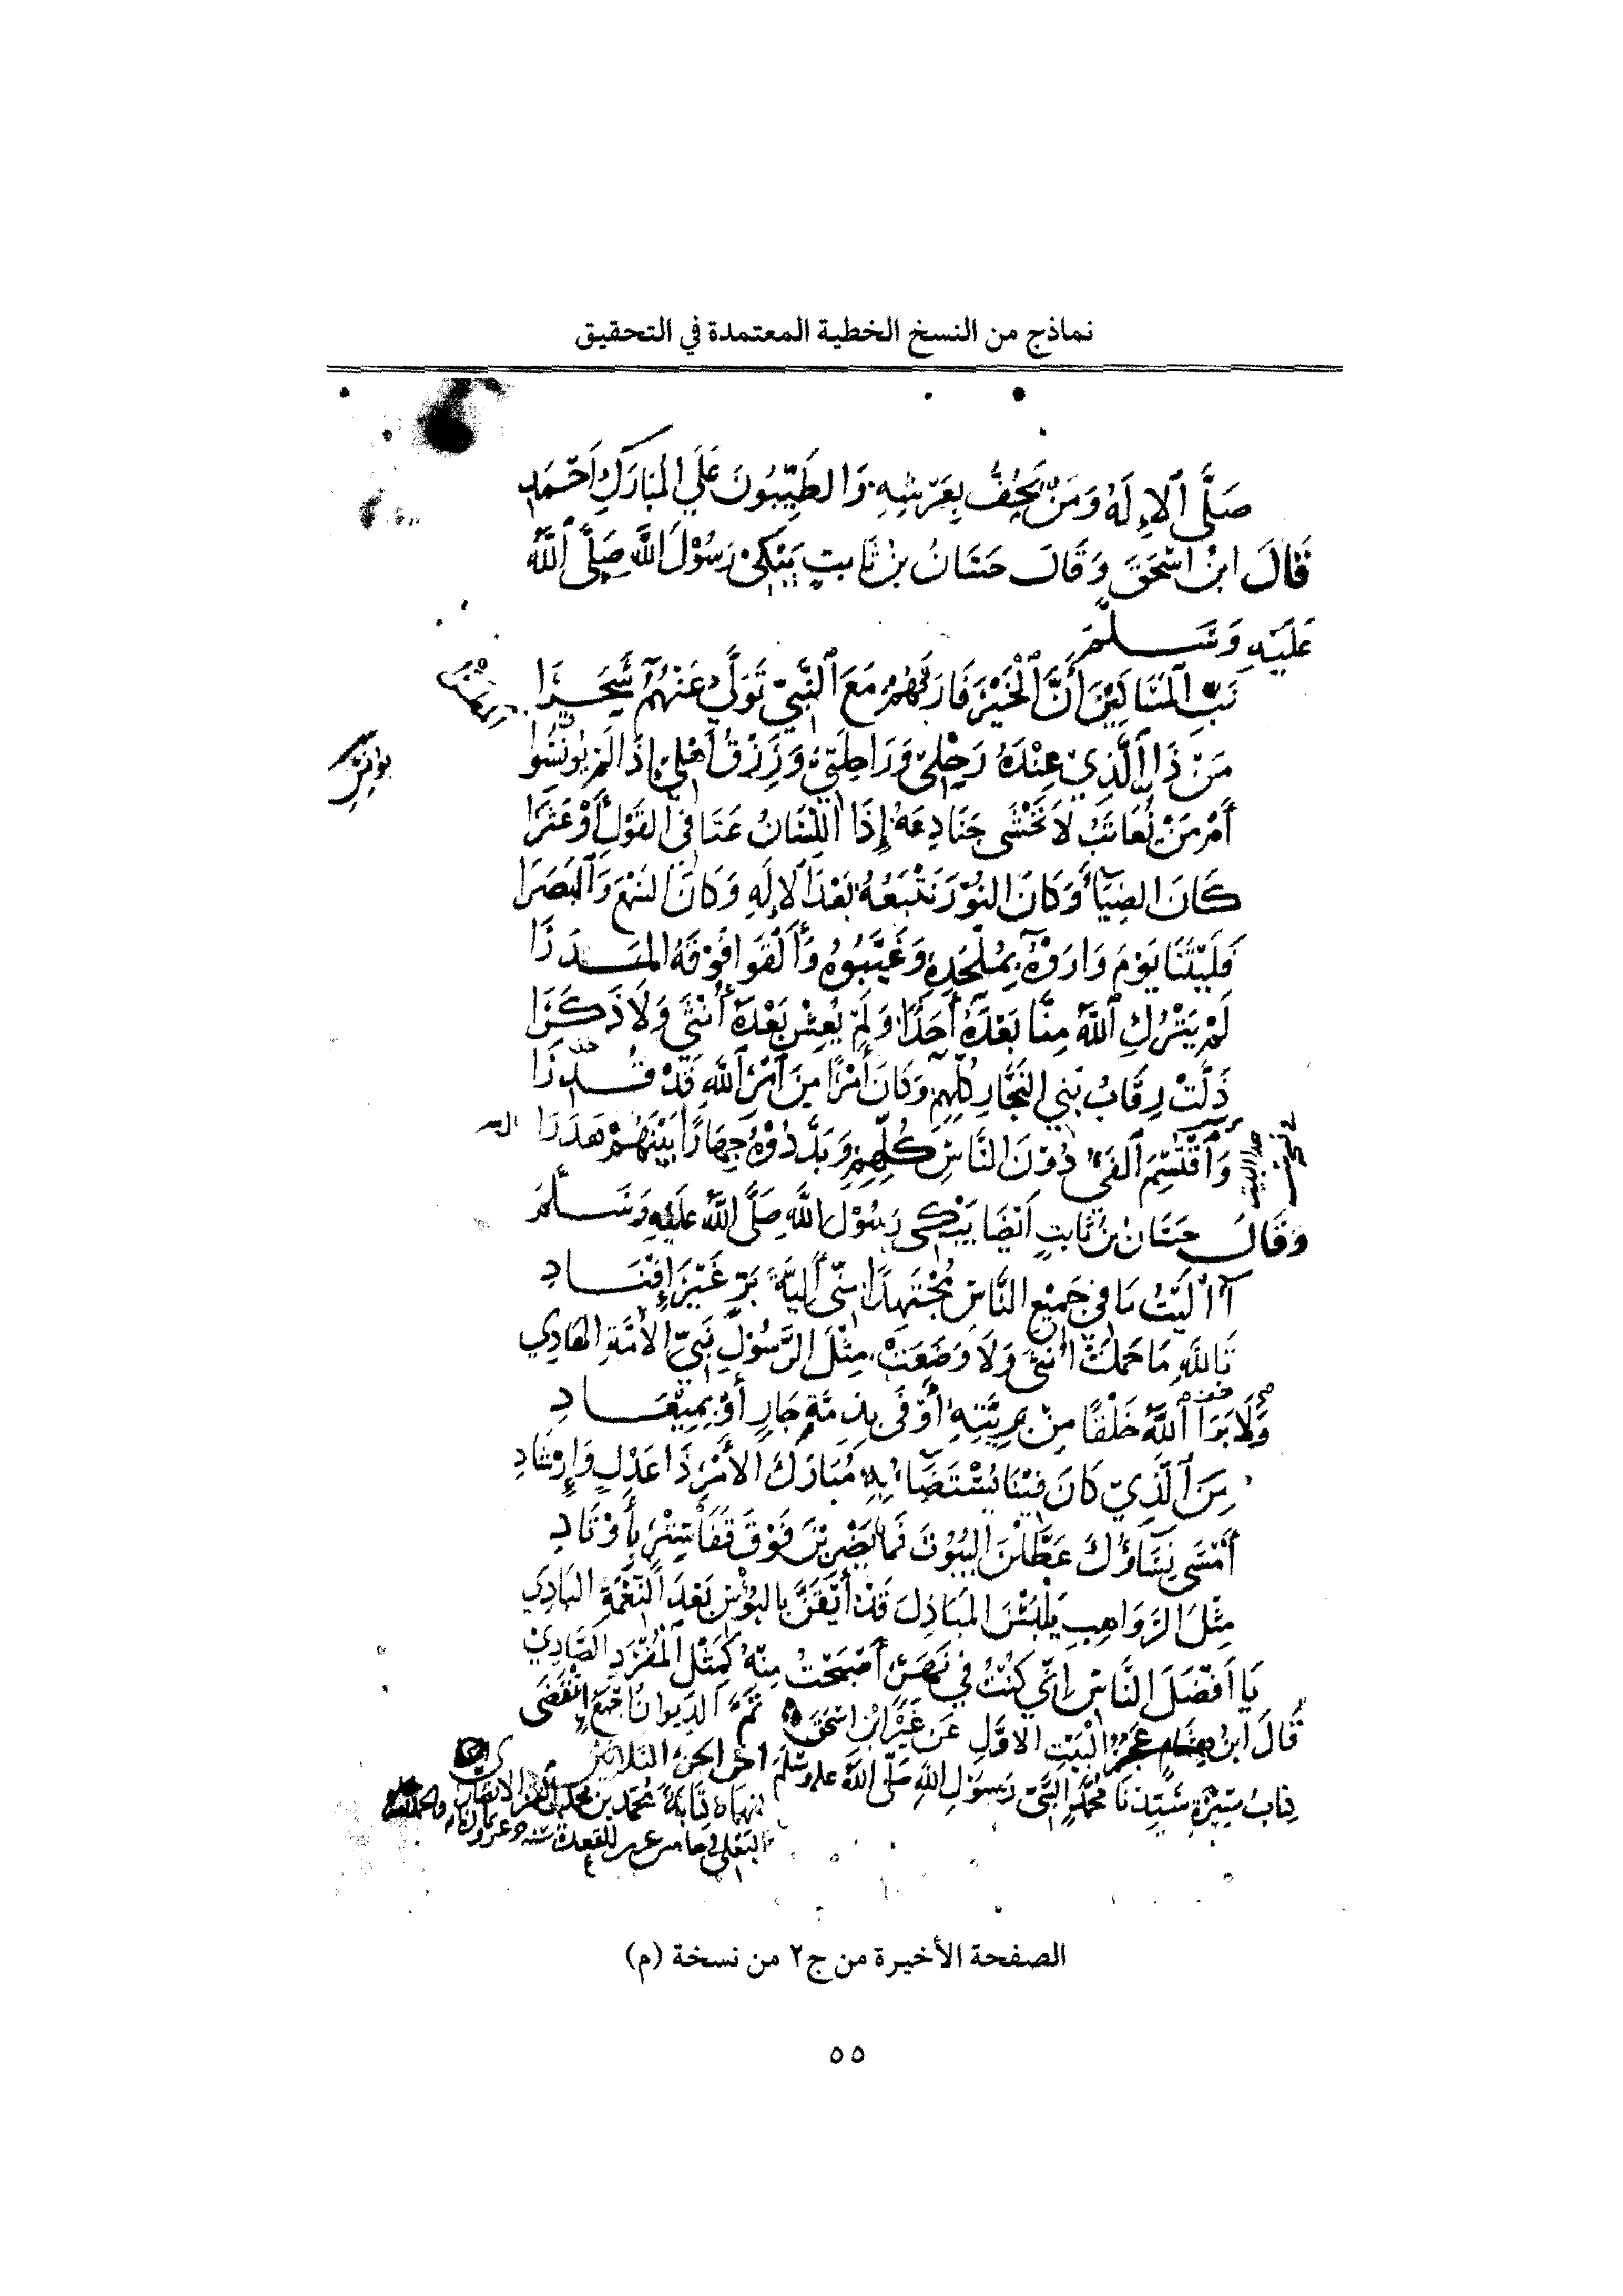 نماذج من النسخ الخطية المعتمدة في التحقيق
صَلَّى ٱلإِلَهُ وَمَنْ يَحُفُّ بِعَرْشِهِ وَالطَّيِّبُونَ عَلَى المُبَارَكِ أَحْمَدِ
قَالَ ابنُ اسْحَقَ وَقَالَ حَسَّانُ بنُ ثَابتٍ يَبْكِي رَسُوْلَ اللَّهِ صَلَّى ٱللَّهُ
عَلَيْهِ وَسَلَّمَ
نَبِّ ٱلْمَسَاكِيْنَ أَنَّ ٱلْخَيْرَ فَارَقَهُمْ مَعَ ٱلنَّبِيِّ تَوَلَّى عَنْهُمُ سَحَرَا
مَنْ ذَا ٱلَّذِيْ عِنْدَهُ رَحْلِيْ وَرَاحِلَتِيْ وَرِزْقُ أَهْلِيْ إِذَا لَمْ يُونِسُوا
أَمْ مَنْ نُعَاتِبُ لَا نَخْشَى جَنَادِعَهُ إِذَا اللِّسَانُ عَتَا فى القَوْلِ أَوْ عَثَرَا
كَانَ الضِيَاءُ وَكَانَ النُوْرَ نَتْبَعُهُ بَعْدَ ٱلإِلَهِ وَكَانَ السَّمْعَ وَٱلبَصَرَا
فَلَيْتَنَا يَوْمَ وَارَوْهُ بِمُلْحَدِهِ وَغَيَّبُوهُ وَأَلْقَوا فَوْقَهُ المَدَرَا
لَمْ يَتْرُكِ ٱللَّهُ مِنَّا بَعْدَهُ أَحَدًا وَلَمْ يُعِشْ بَعْدَهُ أُنْثَى وَلَا ذَكَرَا
ذَلَّتْ رِقَابُ بَنِي النَجَّارِ كُلِّهِمِ وَكَانَ أَمْرًا مِنَ ٱمْرِ ٱللَّهِ قَدْ قُدِّرَا
وَٱقْتُسِمَ ٱلفَيْءُ دُوْنَ النَّاسِ كُلِّهِمِ وَبَدَّدُوْهُ جِهَارًا بَيْنَهُمْ هَدَرَا
وَقَالَ حَسَّانُ بنُ ثَابتٍ أَيْضًا يَبْكِى رَسُوْلَ اللَّهِ صَلَّى اللَّهُ عَلَيْهِ وَسَلَّمَ
آلَيْتُ مَا فِي جَمِيْعِ النَّاسِ مُجْتَهِدًا مِنِّى أَلِيَّةَ بَرٍّ غَيْرَ إِفْنَادِ
تَاللَّهِ مَا حَمَلَتْ أُنْثَى وَلَا وَضَعَتْ مِثْلَ الرَّسُوْلِ نَبِيِّ الأُمَّةِ الهَادِي
وَلَا بَرَا ٱللَّهُ خَلْقًا مِنْ بَرِيَّتِهِ أَوْفَى بِذِمَّةِ جَارٍ أَوْ بِمِيْعَادِ
مِنَ ٱلَّذِيْ كَانَ فِيْنَا يُسْتَضَاءُ بِهِ مُبَارَكَ الأَمْرِ ذَا عَدْلٍ وَإِرْشَادِ
أَمْسَى نِسَاؤُكَ عَطَّلْنَ البُيُوْتَ فَمَا يَضْرِبْنَ فَوْقَ قَفَا سِتْرٍ بِأَوْتَادِ
مِثْلَ الرَّوَاهِبِ يَلْبَسْنَ المَبَاذِلَ قَدْ أَيْقَنَّ بِالبُؤْسِ بَعْدَ ٱلنِّعْمَةِ البَادِي
يَا أَفْضَلَ النَّاسِ إِنِّي كُنْتُ فِي نَهَرٍ أَصْبَحْتُ مِنْهُ كَمِثْلِ ٱلْمُفْرَدِ الصَّادِيْ
قَالَ ابنُ هِشَامٍ عَجُزُ البَيْتِ الأَوَّلِ عَنْ غَيْرِ ابْنِ اسْحَقَ تَمَّ الدِيوانُ أجمع وانْقَضَى
كِتابُ سِيْرَةِ سَيِّدِنَا مُحَمَّدٍ النَّبِيّ رَسُوْلِ اللَّهِ صَلَّى اللَّهُ عليه وسَلَّمَ آخر الجزء الثلاثين
الصفحة الأخيرة من ج٢ من نسخة (م)
٥٥